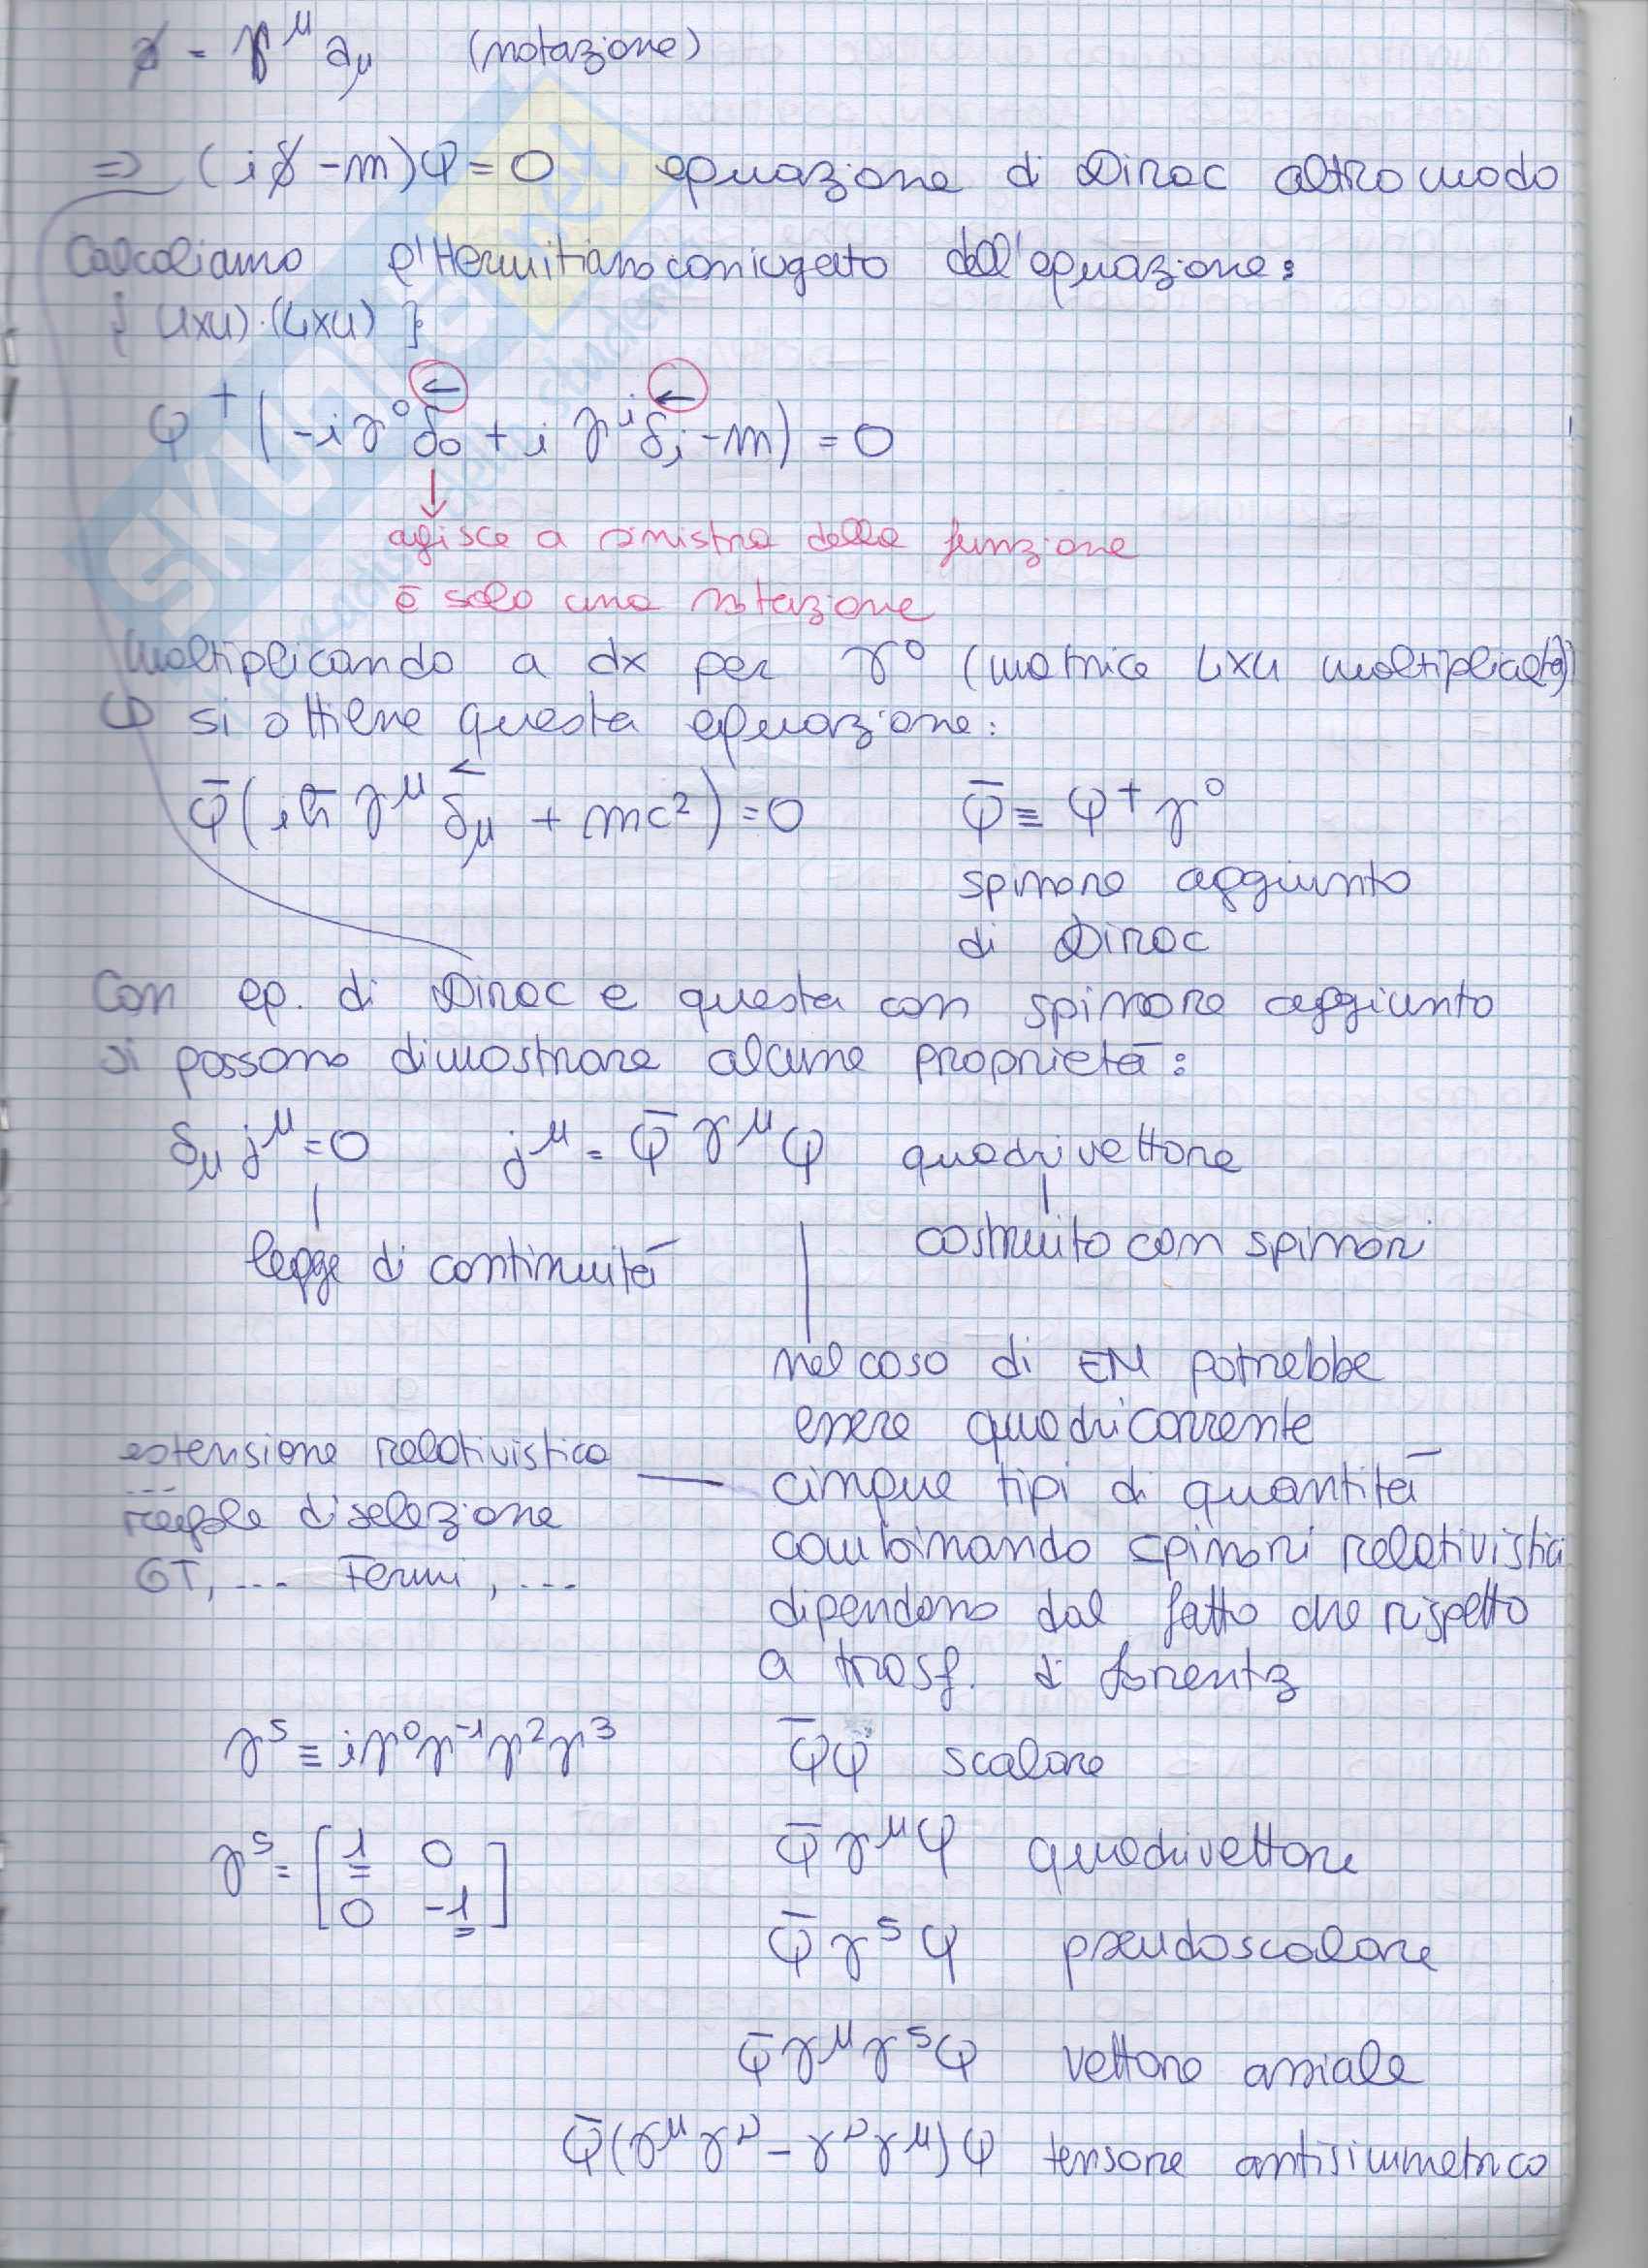 a̸ = γ^μ a_μ (notazione)
⇒ (i∂̸ - m)φ = 0 equazione di Dirac altro modo
Calcoliamo l'Hermitiano coniugato dell'equazione:
[ (4x4)·(4x4) ]:
φ^+ (-iγ^0 ∂_0 + i γ^i ∂_i - m) = 0
← ←
↓
agisce a sinistra della funzione
è solo una notazione
Moltiplicando a dx per γ^0 (matrice 4x4
φ si ottiene questa equazione:
φ̄ (iħ γ^μ ∂_μ + mc^2) = 0 φ̄ ≡ φ^+ γ^0
spinore aggiunto
di Dirac
Con eq. di Dirac e questa con spinore aggiunto
si possono dimostrare alcune proprietà:
∂_μ j^μ = 0 j^μ = φ̄ γ^μ φ quadrivettore
legge di continuità costruito con spinori
nel caso di EM potrebbe
essere quadricorrente
estensione relativistica — cinque tipi di quantità
regole di selezione combinando spinori relativistici
GT, ... Fermi, ... dipendono dal fatto che rispetto
a trasf. di Lorentz
γ^5 ≡ iγ^0γ^-1γ^2γ^3 φ̄φ scalare
γ^5 = [1 0 φ̄ γ^μ φ quadrivettore
0 -1] φ̄ γ^5 φ pseudoscalare
φ̄ γ^μ γ^5 φ vettore assiale
φ̄ (γ^μ γ^ν - γ^ν γ^μ) φ tensore antisimmetrico
SKUOLA.net